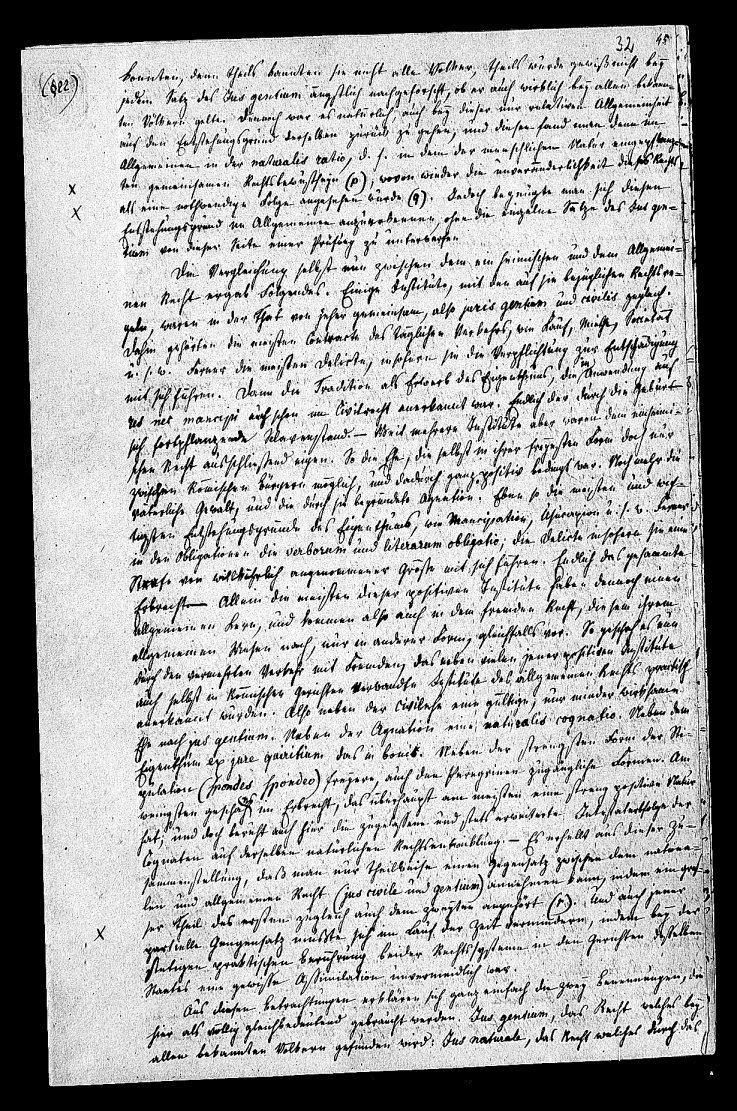 32 45
(§22)
konnten, denn theils kannten sie nicht alle Völker, theils wurde gewiß nicht bey
jedem Satz des Jus gentium ängstlich nachgeforscht, ob er auch wirklich bey allen bekann-
ten Völkern gelte. Danach war es natürlich, auch bey dieser nur relativen Allgemeinheit
auf den Entstehungsgrund derselben zurück zu gehen, und diesen fand man denn im
Allgemeinen in der naturalis ratio, d. h. in dem der menschlichen Natur eingepflanz-
ten gemeinsamen Rechtsbewußtseyn (p), wovon wieder die Unveränderlichkeit dieses Rechts
x als eine nothwendige Folge angesehen wurde (q). Jedoch begnügte man sich diesen
x Entstehungsgrund im Allgemeinen anzuerkennen, ohne die einzelne Sätze des Jus gen-
tium von dieser Seite einer Prüfung zu unterwerfen.
Die Vergleichung selbst nun zwischen dem einheimischen und dem Allgemei-
nen Recht ergab Folgendes. Einige Institute, mit den auf sie bezüglichen Rechtsre-
geln, waren in der That von jeher gemeinsam, also juris gentium und civilis zugleich.
Dahin gehörten die meisten Contracte des täglichen Verkehrs, wie Kauf, Miethe, Societät
u. s. w. Ferner die meisten Delicte, insofern sie die Verpflichtung zur Entschädigung
mit sich führen. Dann die Tradition als Erwerb des Eigenthums, die in Anwendung auf
res nec mancipi auch schon im Civilrecht anerkannt war. Endlich der durch die Geburt
sich fortpflanzende Sklavenstand. — Weit mehrere Institute aber waren dem einheimi-
schen Recht ausschließend eigen. So die Ehe, die selbst in ihrer freyesten Form doch nur
zwischen Römischen Bürgern möglich, und dadurch ganz positiv bedingt war. Noch mehr die
väterliche Gewalt, und die durch sie begründete Agnation. Eben so die meisten und wich-
tigsten Entstehungsgründe des Eigenthums, wie Mancipation, Usucapion u. s. w. Ferner
in den Obligationen die verborum und literarum obligatio; die Delicte insofern sie eine
Strafe von willkührlich angenommener Größe mit sich führen. Endlich das gesammte
Erbrecht. — Allein die meisten dieser positiven Institute haben dennoch einen
allgemeinen Kern, und kommen also auch in dem fremden Recht, diesem ihrem
allgemeinen Wesen nach, nur in anderer Form, gleichfalls vor. So geschah es nun
durch den vermehrten Verkehr mit Fremden, das neben vielen jener positiven Institute
auch selbst in Römischen Gerichten verwandte Institute des allgemeinen Rechts practisch
anerkannt wurden. Also neben der civilehe eine gültige, nur minder wirksame
Ehe nach jus gentium. Neben der Agnation eine naturalis cognatio. Neben dem
Eigenthum ex jure quiritium das in bonis. Neben der strengsten Form der Sti-
pulation (spondes, spondeo) freyere, auch den Peregrinen zugängliche Formen. Am
wenigsten geschah es im Erbrecht, das überhaupt am meisten eine streng positive Natur
hat; und doch beruht auch hier die zugelassene und stets erweiterte Intestaterbfolge der
Cognaten auf derselben natürlichen Rechtsentwicklung. — Es erhellt aus dieser Zu-
sammenstellung, daß man nur theilweise einen Gegensatz zwischen dem natio-
len und allgemeinen Recht (jus civile und gentium) annehmen kann, indem ein gro-
ßer Theil des ersten zugleich auch dem zweyten angehört (r). Und auch jener
x partielle Gegensatz mußte sich im Lauf der Zeit vermindern, indem bey der
stetigen praktischen Berührung beider Rechtssysteme in den Gerichten desselben
Staates eine gewisse Assimilation unvermeidlich war.
Aus diesen Betrachtungen erklären sich ganz einfach die zwey Benennungen, die
hier als völlig gleichbedeutend gebraucht werden. Jus gentium, das Recht welches bey
allen bekannten Völkern gefunden wird: Jus naturale, das Recht welches durch das